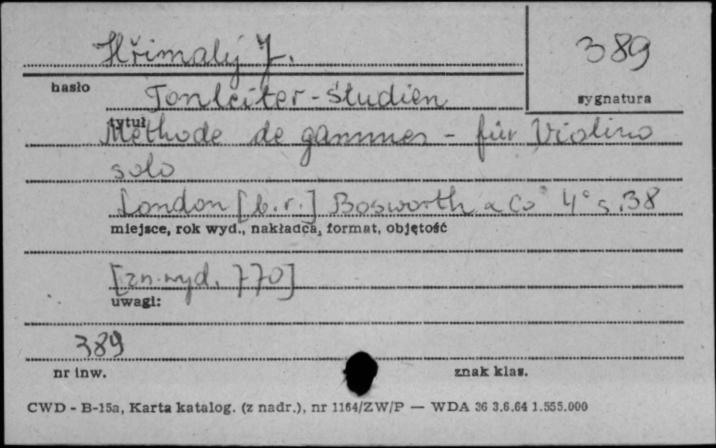 Hřimalý J.
389
hasło
sygnatura
Tonleiter - Studien
tytuł
Méthode de gammes - für Violino
solo
London [b.r.] Bosworth & Co 4° s. 38
miejsce, rok wyd., nakładca, format, objętość
[zn. wyd. 770]
uwagi:
389
nr inw.
znak klas.
CWD - B-15a, Karta katalog. (z nadr.), nr 1164/ZW/P — WDA 36 3.6.64 1.555.000